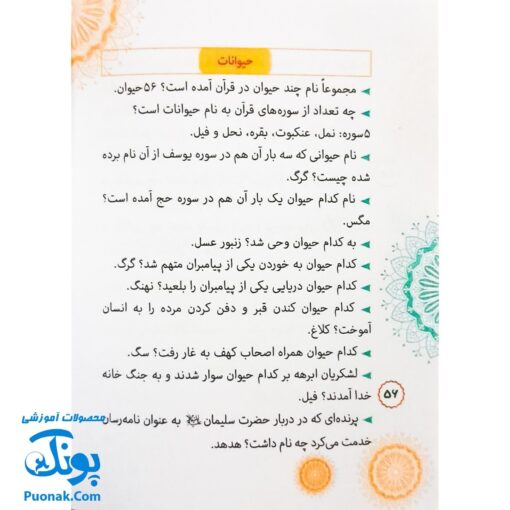 حیوانات
◄ مجموعاً نام چند حیوان در قرآن آمده است؟ ۵۶حیوان.
◄ چه تعداد از سوره‌های قرآن به نام حیوانات است؟
۵سوره: نمل، عنکبوت، بقره، نحل و فیل.
◄ نام حیوانی که سه بار آن هم در سوره یوسف از آن نام برده
شده چیست؟ گرگ.
◄ نام کدام حیوان یک بار آن هم در سوره حج آمده است؟
مگس.
◄ به کدام حیوان وحی شد؟ زنبور عسل.
◄ کدام حیوان به خوردن یکی از پیامبران متهم شد؟ گرگ.
◄ کدام حیوان دریایی یکی از پیامبران را بلعید؟ نهنگ.
◄ کدام حیوان کندن قبر و دفن کردن مرده را به انسان
آموخت؟ کلاغ.
◄ کدام حیوان همراه اصحاب کهف به غار رفت؟ سگ.
◄ لشکریان ابرهه بر کدام حیوان سوار شدند و به جنگ خانه
خدا آمدند؟ فیل.
۵۶
◄ پرنده‌ای که در دربار حضرت سلیمان به عنوان نامه‌رسان
خدمت می‌کرد چه نام داشت؟ هدهد.
محصولات آموزشی
پونک
Puonak.Com